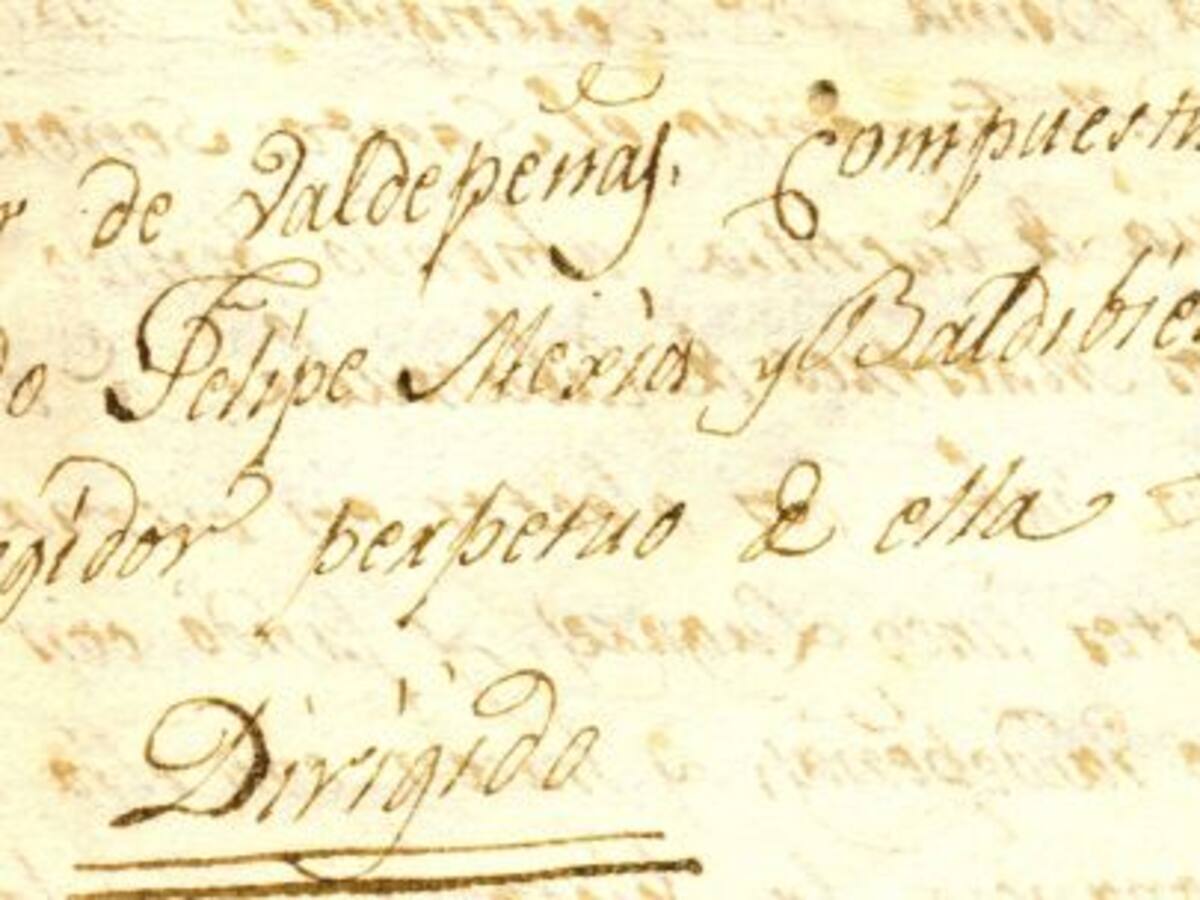 r de Valdepeñas, Compuest
do Felipe Mexia y Baldibie
gidor perpetuo de ella
Dirigido